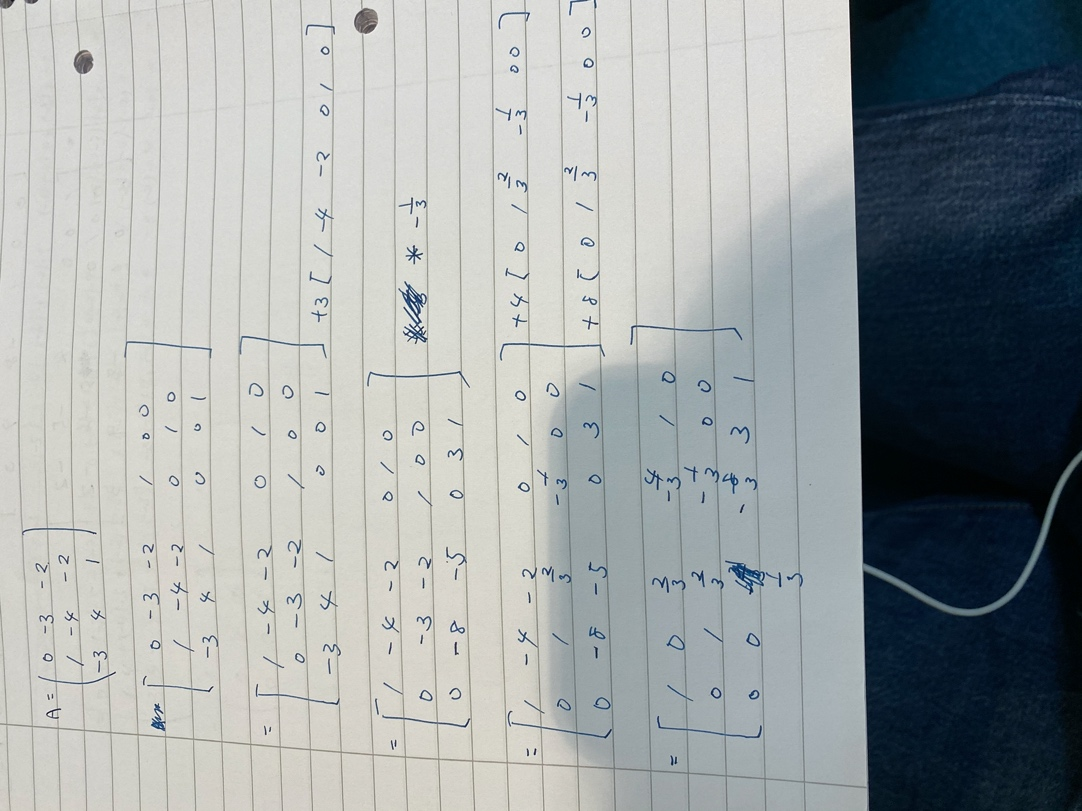 A = ( 0 -3 -2
1 -4 -2
-3 4 1 )
[ 0 -3 -2 1 0 0
1 -4 -2 0 1 0
-3 4 1 0 0 1 ]
= [ 1 -4 -2 0 1 0
0 -3 -2 1 0 0
-3 4 1 0 0 1 ] +3 [ 1 -4 -2 0 1 0 ]
= [ 1 -4 -2 0 1 0
0 -3 -2 1 0 0 * -1/3
0 -8 -5 0 3 1 ]
= [ 1 -4 -2 0 1 0 +4 [ 0 1 2/3 -1/3 0 0 ]
0 1 2/3 -1/3 0 0
0 -8 -5 0 3 1 ] +8 [ 0 1 2/3 -1/3 0 0 ]
= [ 1 0 2/3 -4/3 1 0
0 1 2/3 -1/3 0 0
0 0 1/3 -8/3 3 1 ]